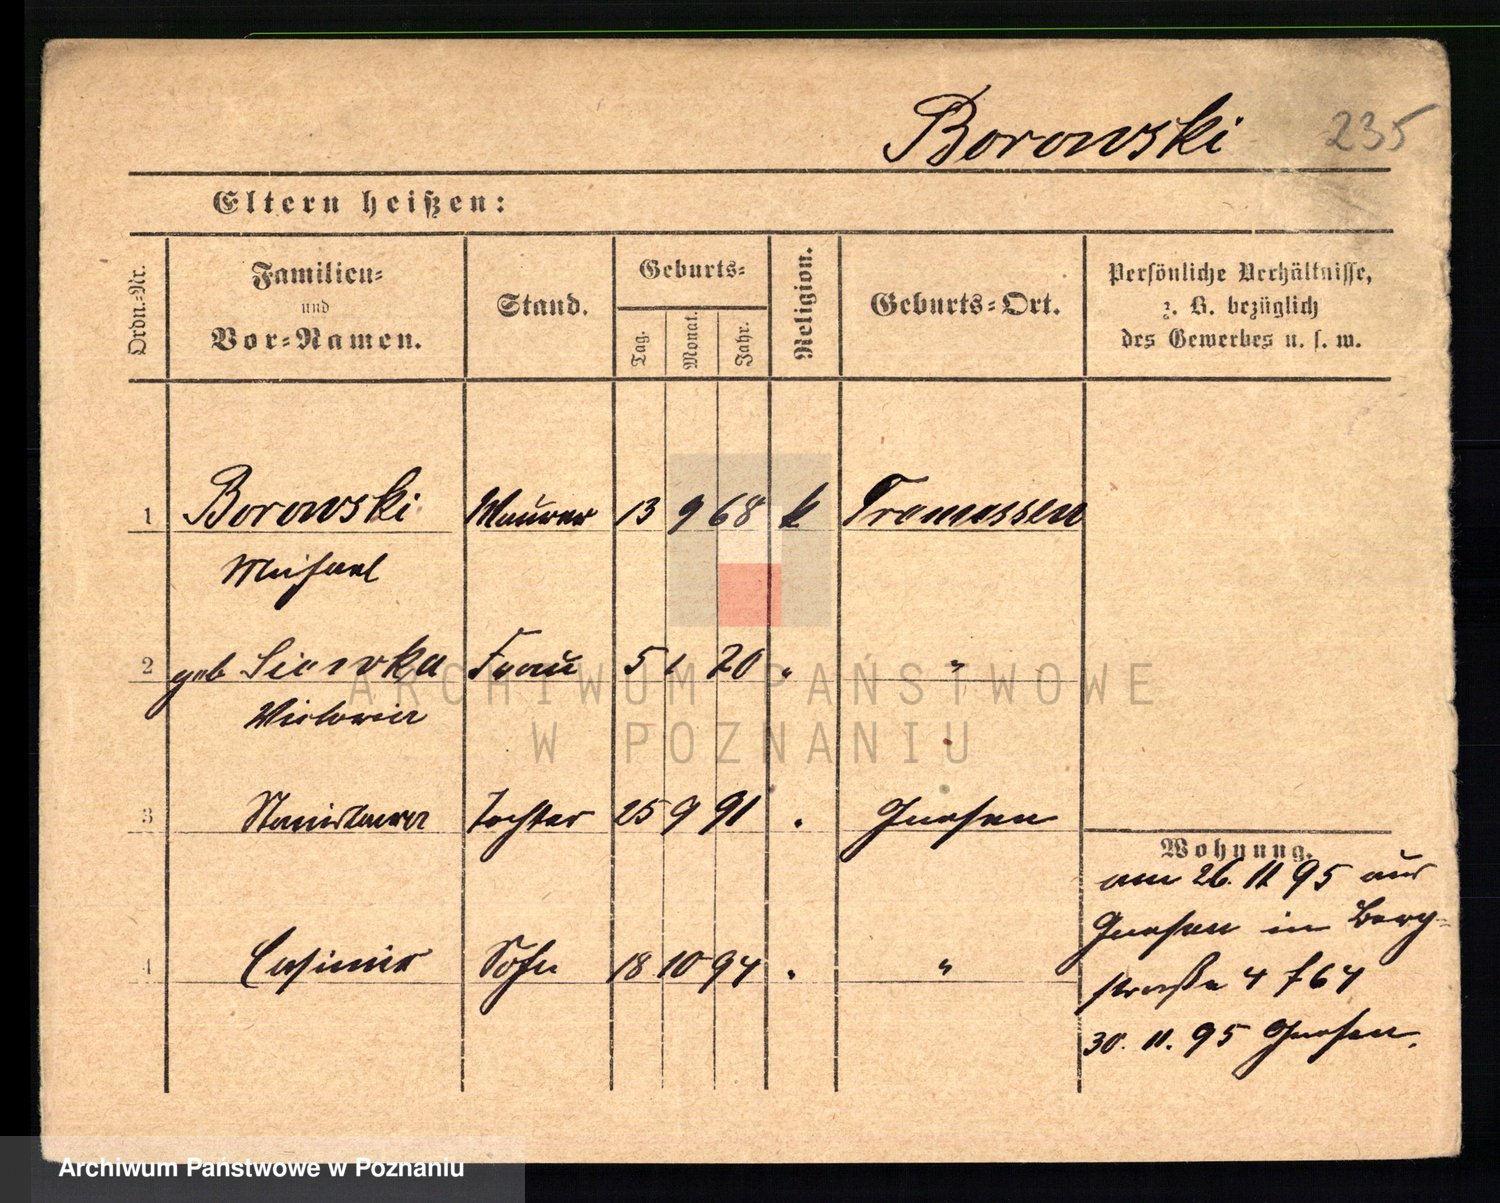 Borowski 235
Eltern heißen:
Ordn.-Nr.
Familien-
und
Vor-Namen.
Stand.
Geburts-
Tag.
Monat.
Jahr.
Religion.
Geburts-Ort.
Persönliche Verhältnisse,
z. B. bezüglich
des Gewerbes u. s. w.
1 Borowski Maurer 13 9 68 k Tremessen
Michael
2 geb Frau 5 1 70 " "
Victoria
3 Stanislawa Tochter 25 9 91 " Gnesen
4 Casimir Sohn 18 10 94 " "
Wohnung.
am 26. 11 95 aus
Gnesen in Berg-
straße 4 f 64
30. 11. 95 Gnesen.
ARCHIWUM PAŃSTWOWE
W POZNANIU
Archiwum Państwowe w Poznaniu